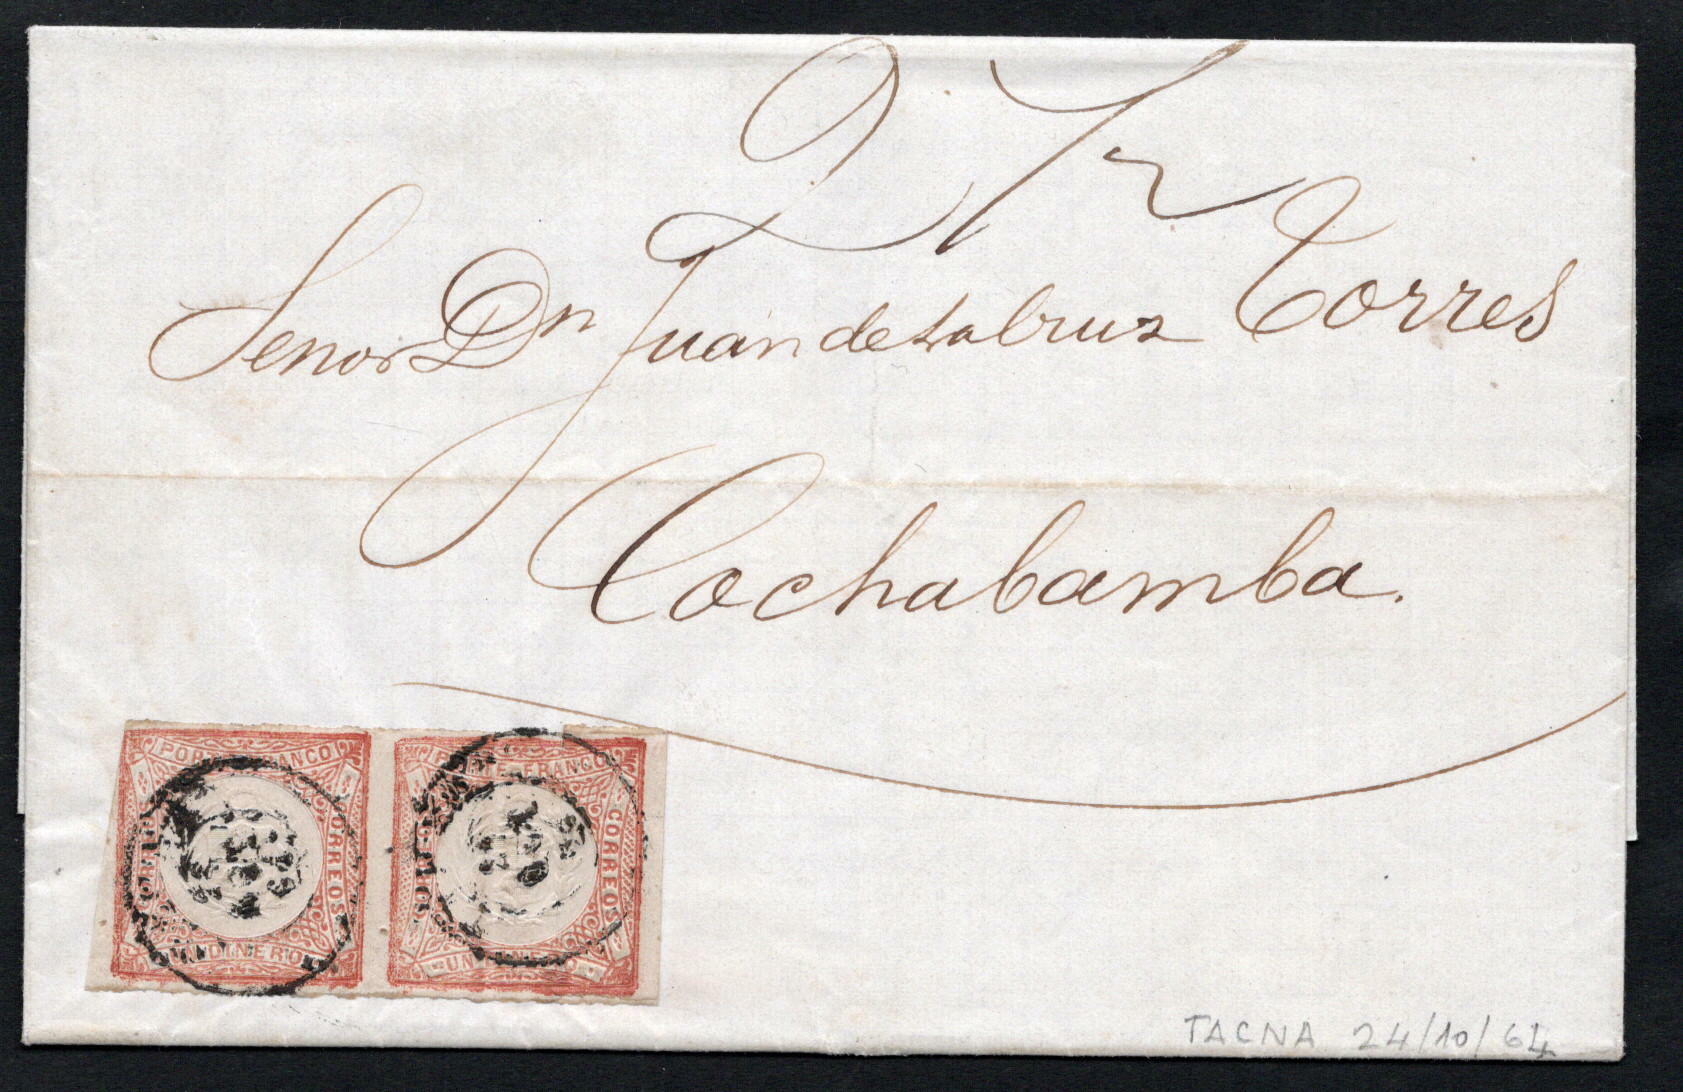 Señor Dn Juan de la Cruz Torres
Cochabamba.
PORTE FRANCO
CORREOS
UN DINERO
PORTE FRANCO
CORREOS
UN DINERO
TACNA 24/10/64